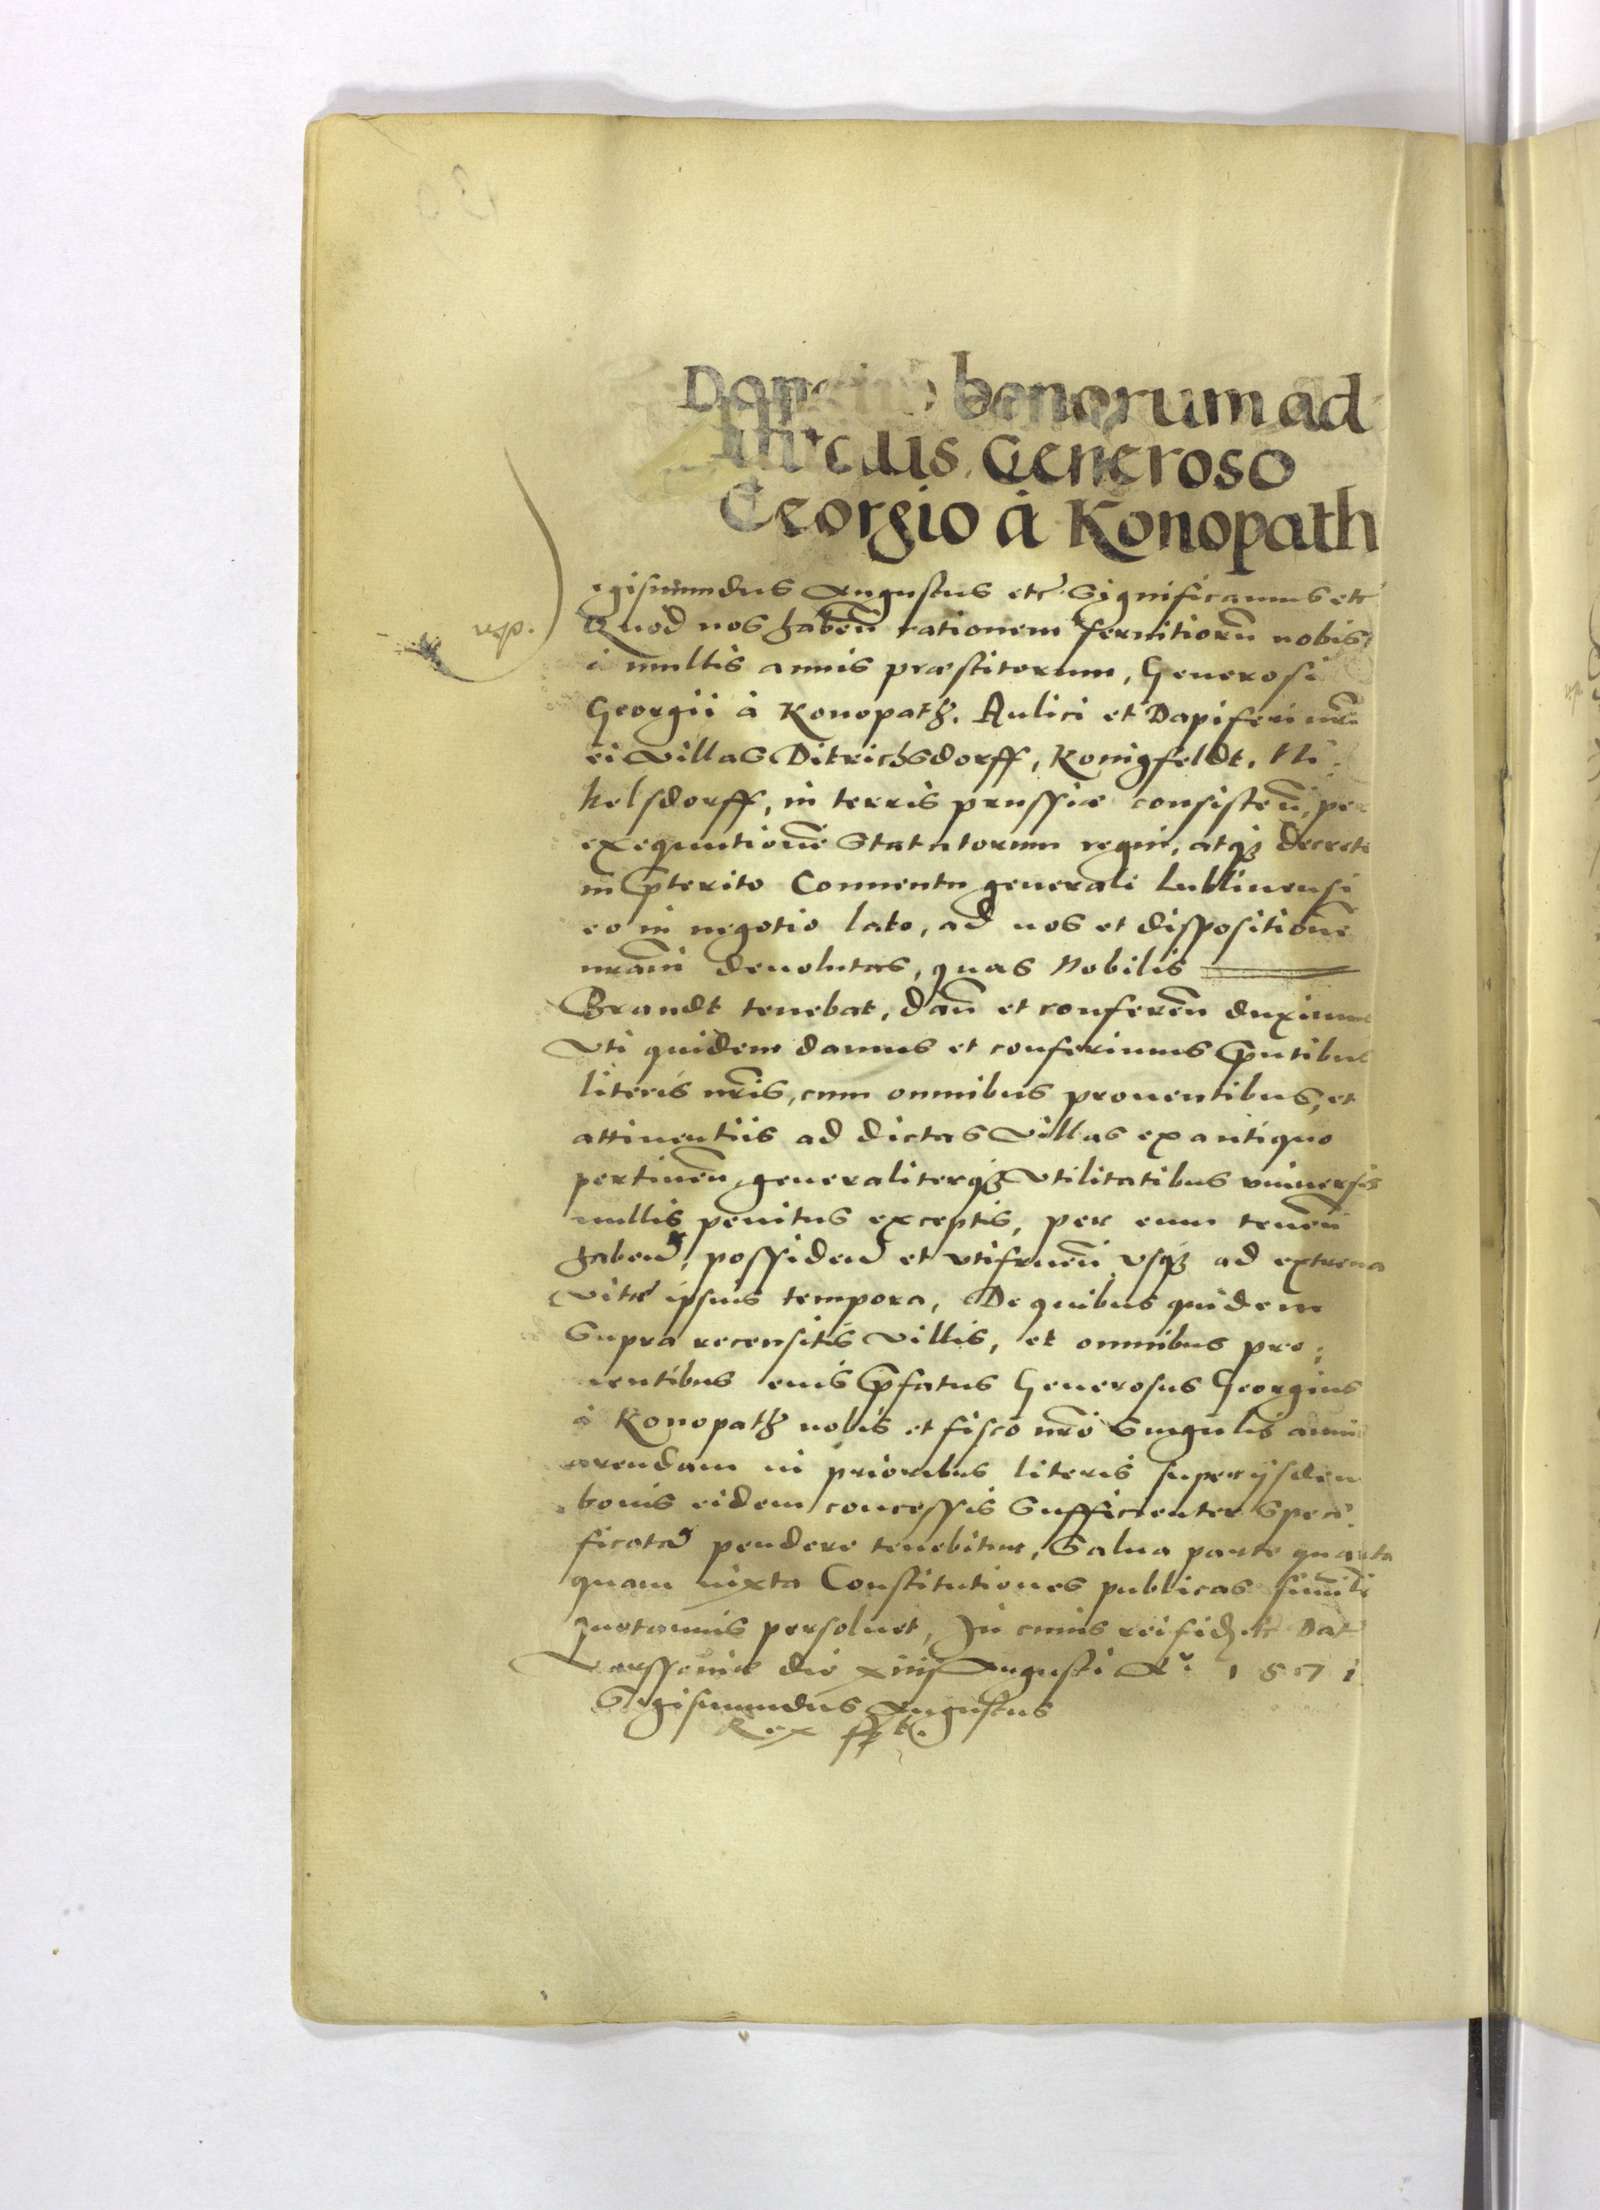 Donatio bonorum ad
Generoso
Georgio à Konopath
egismundus Augustus etc Significamus etc
Quod nos haben̄ rationem seruitiorū nobis
à multis annis præstitorum, Generosi
Georgii à Konopath, Aulici et Dapiferi nrī
ei villas Ditrichsdorff, Konigfeldt, Ni
kelsdorff, in terris prussiæ consisten̄, per
exequutionē Statutorum regni, atqȝ decreto
in p̄terito Conuentu generali Lublinensi
eo in negotio lato, ad nos et dispositionē
nrām deuolutas, quas Nobilis
Brandt tenebat, dan̄ et conferen̄ duximus
Vti quidem damus et conferimus p̄ntibus
literis nrīs, cum omnibus prouentibus, et
attinentiis ad dictas villas ex antiquo
pertinen̄, generaliterqȝ vtilitatibus vniuersis
nullis penitus exceptis, per eum tenen̄
haben̄, possiden̄ et vtifruen̄ vsqȝ ad extrema
vitæ ipsius tempora, De quibus quidem
Supra recensitis villis, et omnibus pro:
uentibus euis p̄fatus Generosus Georgius
à Konopath nobis et fisco nrō Singulis annis
arendam in prioribus literis super ijsdem
bonis eidem concessis Sufficienter Speci:
ficatā pendere tenebitur, Salua parte quarta
quam iuxta Constitutiones publicas
quotannis persoluet, In cuius rei fid etc Dat
Varssauiæ die xiiij Augusti Aº 1571
Sigismundus Augustus
Rex sst.